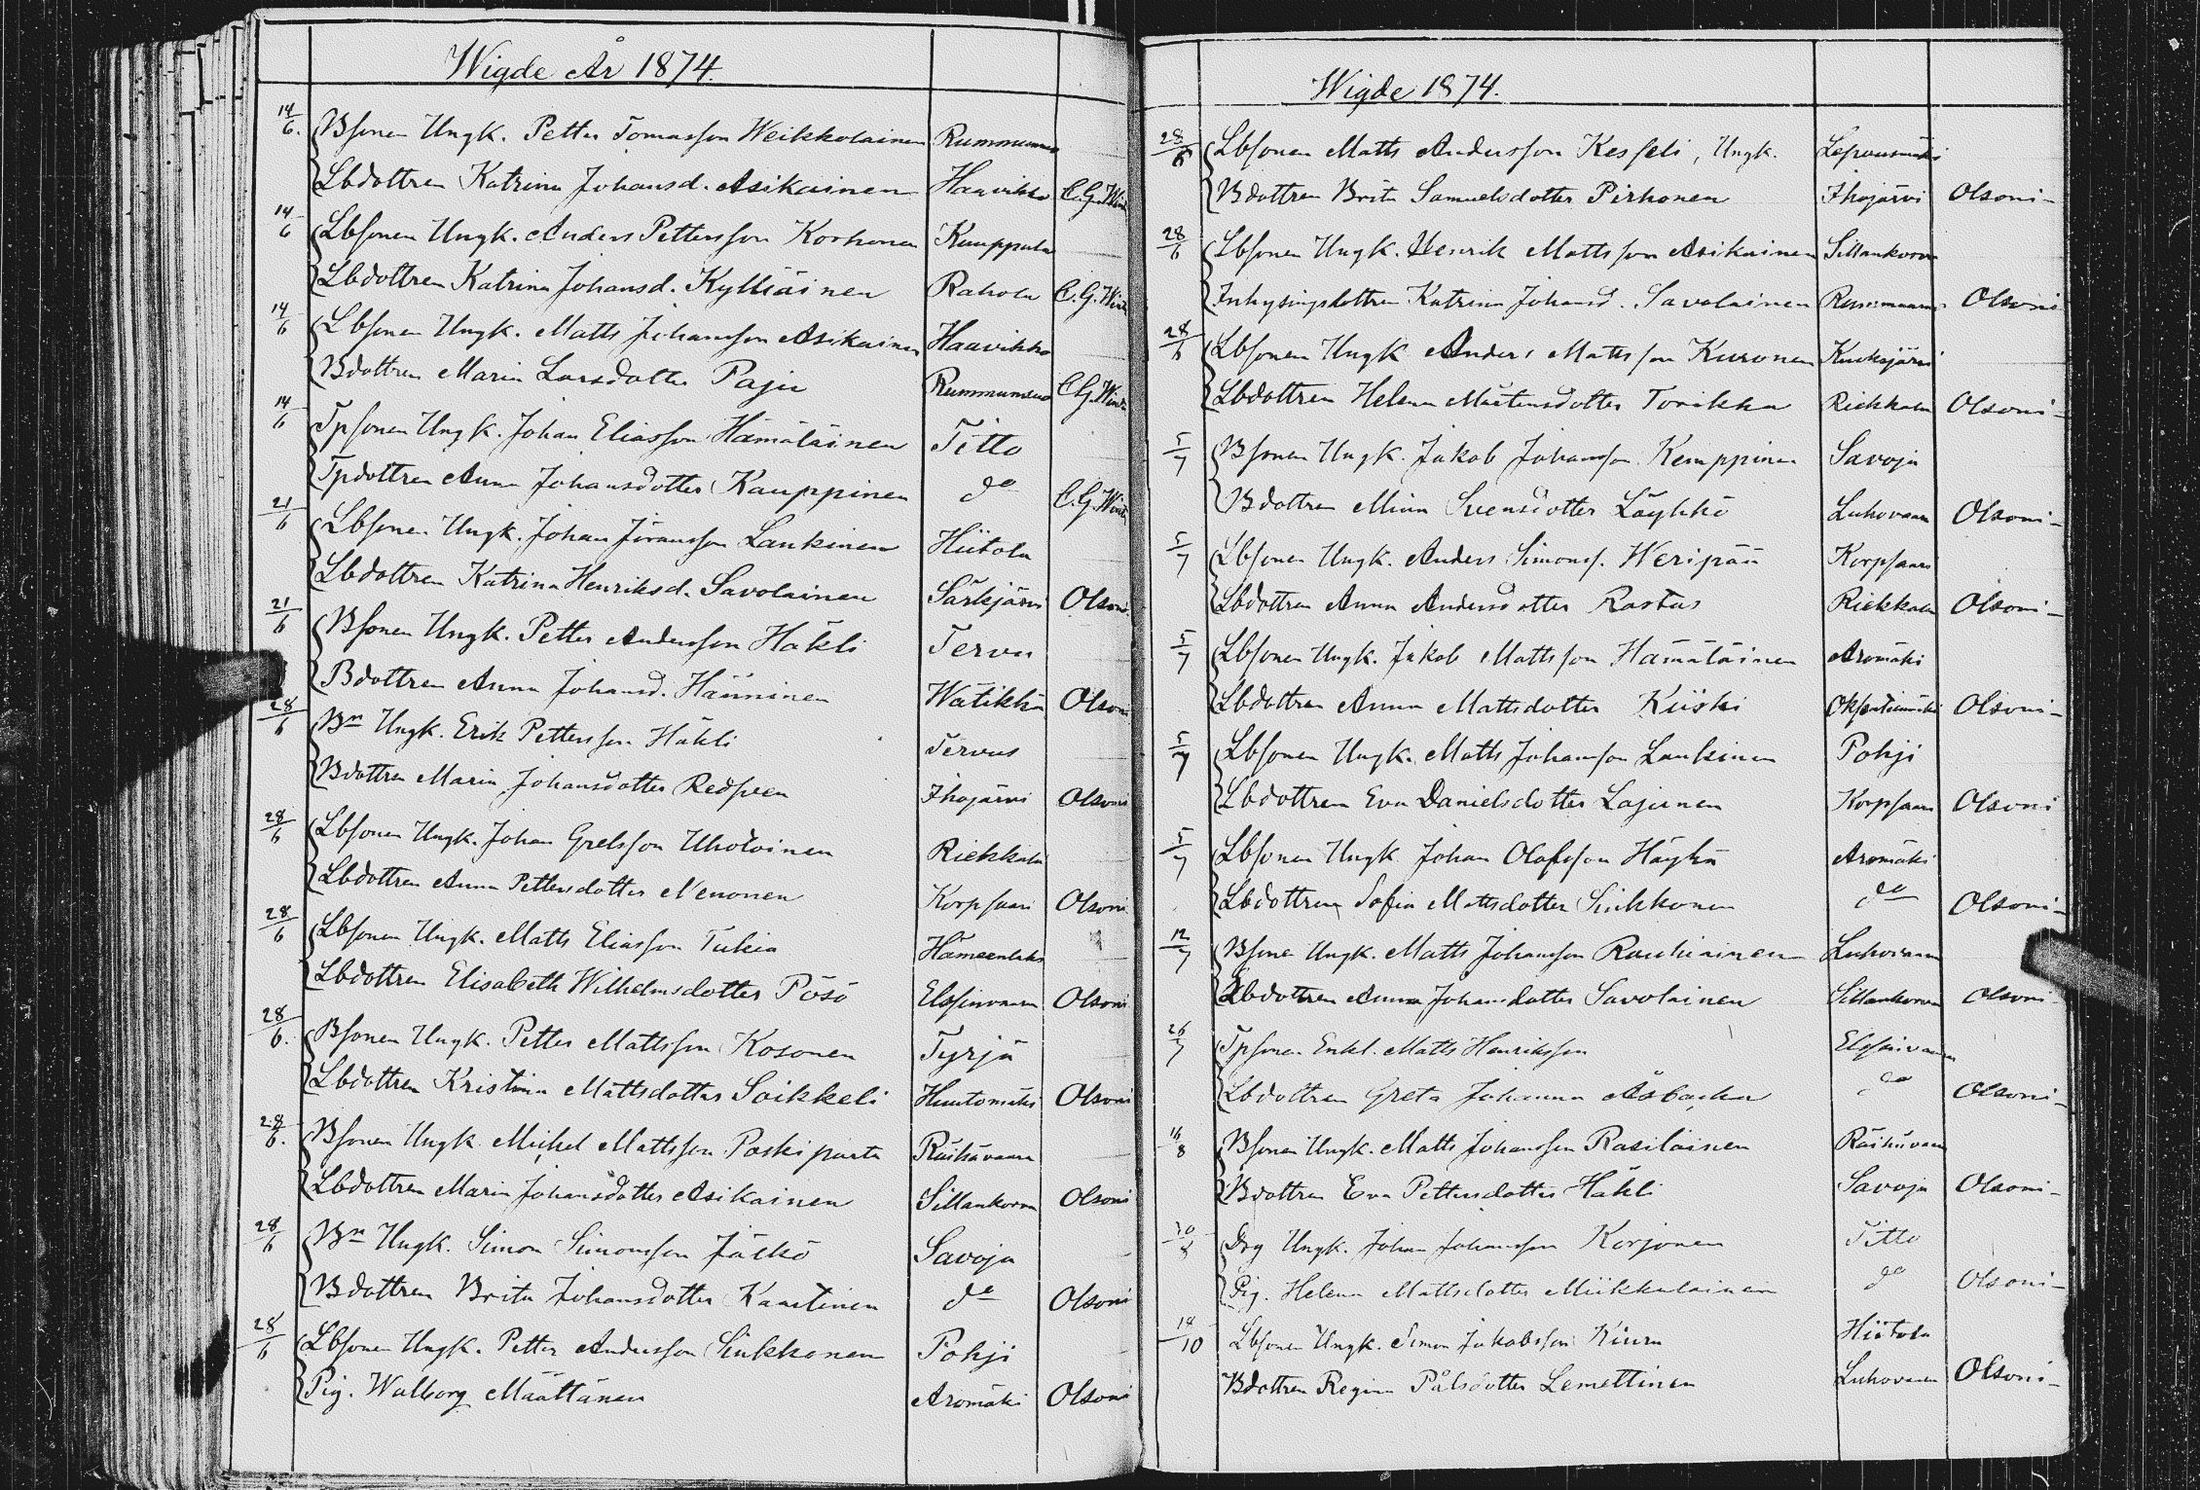 Wigde År 1874.
14/6. Bsonen Ungk. Petter Tomasson Weikkolainen Rummunsuo
Lbdottren Katrina Johansd. Asikainen Haavikko C.G. Winter
14/6 Lbsonen Ungk. Anders Pettersson Korhonen Kamppula
Lbdottren Katrina Johansd. Kylliäinen Rahola C.G. Winter
14/6 Lbsonen Ungk. Matts Johansson Asikainen Haavikko
Bdottren Maria Larsdotter Paju Rummunsuo C.G. Winter
14/6 Tpsonen Ungk. Johan Eliasson Hämäläinen Titto
Tpdottren Anna Johansdotter Kauppinen do C.G. Winter
21/6 Lbsonen Ungk. Johan Göransson Lankinen Hiitola
Lbdottren Katrina Henriksd. Savolainen Särkjärvi Olsoni
21/6 Bsonen Ungk. Petter Andersson Häkli Tervu
Bdottren Anna Johansd. Hänninen Wätikkä Olsoni
28/6 Bn Ungk. Erik Pettersson Häkli Tervus
Bdottren Maria Johansdotter Redsven Ihojärvi Olsoni
28/6 Lbsonen Ungk. Johan Grelsson Uhotoinen Riekkala
Lbdottren Anna Pettersdotter Nenonen Korpsaari Olsoni
28/6 Lbsonen Ungk. Matts Eliasson Tukia Hämeenlaks
Lbdottren Elisabeth Wilhelmsdotter Pösö Elssinvaara Olsoni
28/6. Bsonen Ungk. Petter Mattsson Kosonen Tyrjä
Lbdottren Kristina Mattsdotter Soikkeli Huutomäki Olsoni
28/6. Bsonen Ungk. Michel Mattsson Poskiparta Räihävaara
Lbdottren Maria Johansdotter Asikainen Sillankorva Olsoni
28/6 Bn Ungk. Simon Simonsson Jääskö Savoja
Bdottren Brita Johansdotter Kaartinen do Olsoni
28/6 Lbsonen Ungk. Petter Andersson Sinkkonen Pohji
Pig. Walborg Määttänen Aromäki Olsoni
Wigde 1874.
28/6 Lbsonen Matts Andersson Kesseli, Ungk.
Bdottren Brita Samuelsdotter Pirhonen Ihojärvi Olsoni
28/6 Lbsonen Ungk. Henrik Mattsson Asikainen Sillankorva
Inhysingsdottren Katrina Johansd. Savolainen Rummunsuo Olsoni
28/6 Lbsonen Ungk. Anders Mattsson Kuronen Kuuksjärvi
Lbdottren Helena Mårtensdotter Torikka Riekkala Olsoni
5/7 Bsonen Ungk. Jakob Johansson Kemppinen Savoja
Bdottren Mina Svensdotter Läykkö Luhovaara Olsoni
5/7 Lbsonen Ungk. Anders Simonss. Weripää Korpsaari
Lbdottren Anna Andersdotter Rastas Riekkala Olsoni
5/7 Lbsonen Ungk. Jakob Mattsson Hämäläinen Aromäki
Lbdottren Anna Mattsdotter Kiiski Olsoni
5/7 Lbsonen Ungk. Matts Johansson Lankinen Pohji
Lbdottren Eva Danielsdotter Lajunen Korpsaari Olsoni
5/7 Lbsonen Ungk. Johan Olofsson Häyhä Aromäki
Lbdottren Sofia Mattsdotter Sinkkonen do Olsoni
12/7 Bsone Ungk. Matts Johansson Rautiainen Luhovaara
Lbdottren Anna Johansdotter Savolainen Sillankorva Olsoni
26/7 Tpsonen Enkl. Matts Henriksson Elssinvaara
Lbdottren Greta Johanna Åsbacka do Olsoni
16/8 Bsonen Ungk. Matts Johansson Rasilainen Räihävaara
Bdottren Eva Pettersdotter Häkli Savoja Olsoni
30/8 Drg Ungk. Johan Johansson Korjonen Titto
Pig. Helena Mattsdotter Miikkulainen do Olsoni
18/10 Lbsonen Ungk. Simon Jakobsson Kiuru Hiitola
Bdottren Regina Pålsdotter Lemettinen Luhovaara Olsoni